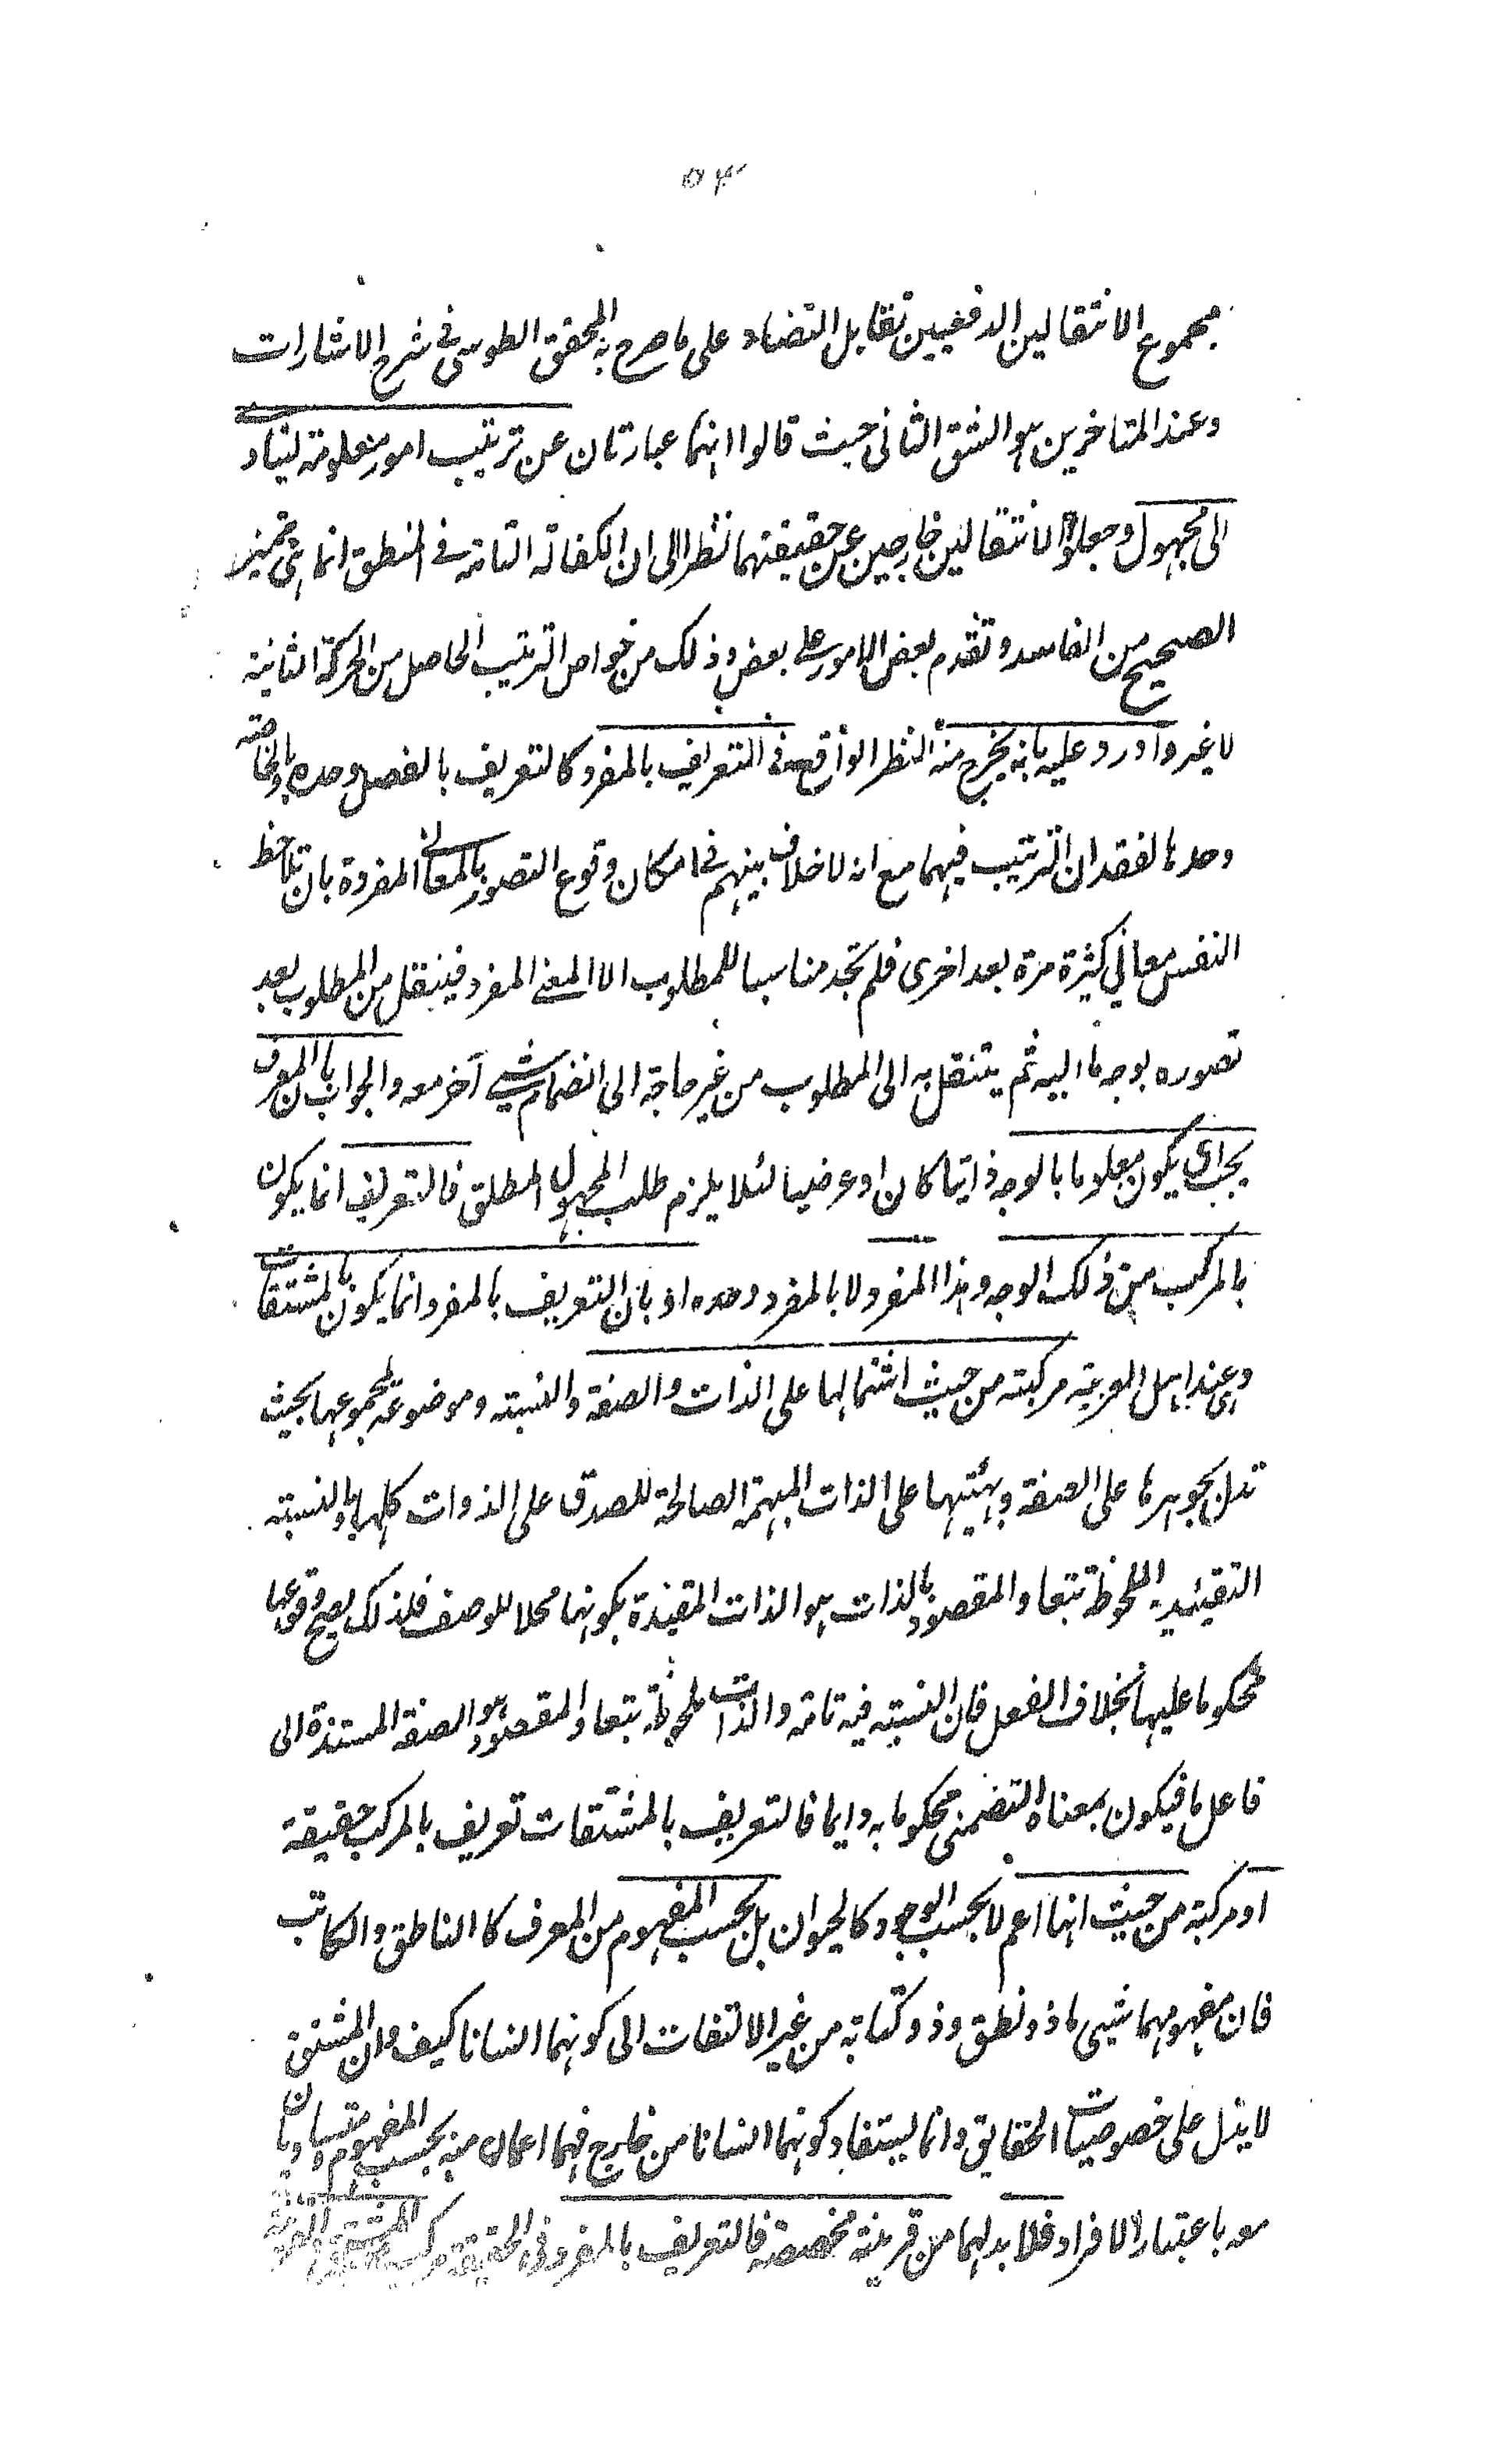 ۵۴
مجموع الانتقالين الدفعيين تقابل التضاد على ما صرح به المحقق الطوسى فى شرح الاشارات
وعند المتاخرين هو الشق الثانى حيث قالوا انهما عبارتان عن ترتيب امور معلومة ليتادى
الى مجهول وجعلوا الانتقالين خارجين عن حقيقتهما نظرا الى ان الكفالة التامة فى المنطق انما هى تمييز
الصحيح من الفاسد وتقدم بعض الامور على بعض وذلك من خواص الترتيب الحاصل من الحركة الثانية
لا غير واورد عليه بانه يخرج منه النظر الواقع فى التعريف بالمفرد كالتعريف بالفصل وحده او بالخاصة
وحدها لفقدان الترتيب فيهما مع انه لا خلاف بينهم فى امكان وقوع التصور بالمعانى المفردة بان تلاحظ
النفس معانى كثيرة مرة بعد اخرى فلم تجد مناسبا للمطلوب الا المعنى المفرد فينتقل من المطلوب بعد
تصوره بوجه ما اليه ثم ينتقل به الى المطلوب من غير حاجة الى انضمام شيى آخر معه والجواب بان المعرف
يجب ان يكون معلوما بالوجه ذاتيا كان او عرضيا لئلا يلزم طلب المجهول المطلق فالتعريف انما يكون
بالمركب من ذلك الوجه وهذا المفرد لا بالمفرد وحده او بان التعريف بالمفرد انما يكون بالمشتقات
وهى عند اهل العربية مركبة من حيث اشتمالها على الذات والصفة والنسبة وموضوعة لمجموعها بحيث
تدل بجوهرها على الصفة وبهيئتها على الذات المبهمة الصالحة للصدق على الذوات كلها والنسبة
التقييدية الملحوظة تبعا والمقصود بالذات هو الذات المقيدة بكونها محلا للوصف فلذلك يصح وقوعها
محكوما عليها بخلاف الفعل فان النسبة فيه تامة والذات ملحوظة تبعا والمقصود هو الصفة المسندة الى
فاعل ما فيكون بمعناه التضمنى محكوما به دايما فالتعريف بالمشتقات تعريف بالمركب حقيقة
او مركبة من حيث انها اعم لا بحسب الوجود كالحيوان بل بحسب المفهوم من المعرف كالناطق والكاتب
فان مفهومهما شيى ما ذو نطق وذو كتابة من غير الالتفات الى كونهما انسانا كيف وان المشتق
لا يدل على خصوصيات الحقايق وانما يستفاد كونهما انسانا من خارج فهما اعمان منه بحسب المفهوم ومتساويان
معه باعتبار الافراد فلا بد لهما من قرينة مخصصة فالتعريف بالمفرد فى الحقيقة مركب